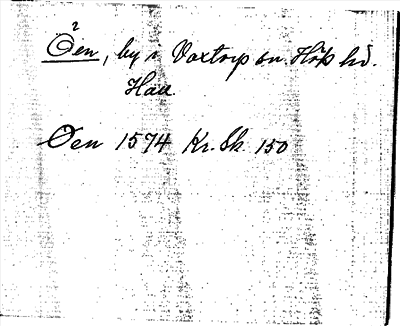 2
Öen, by i Voxtorp sn. Höks hd.
Hall
Øen 1574 Kr. Sk. 150